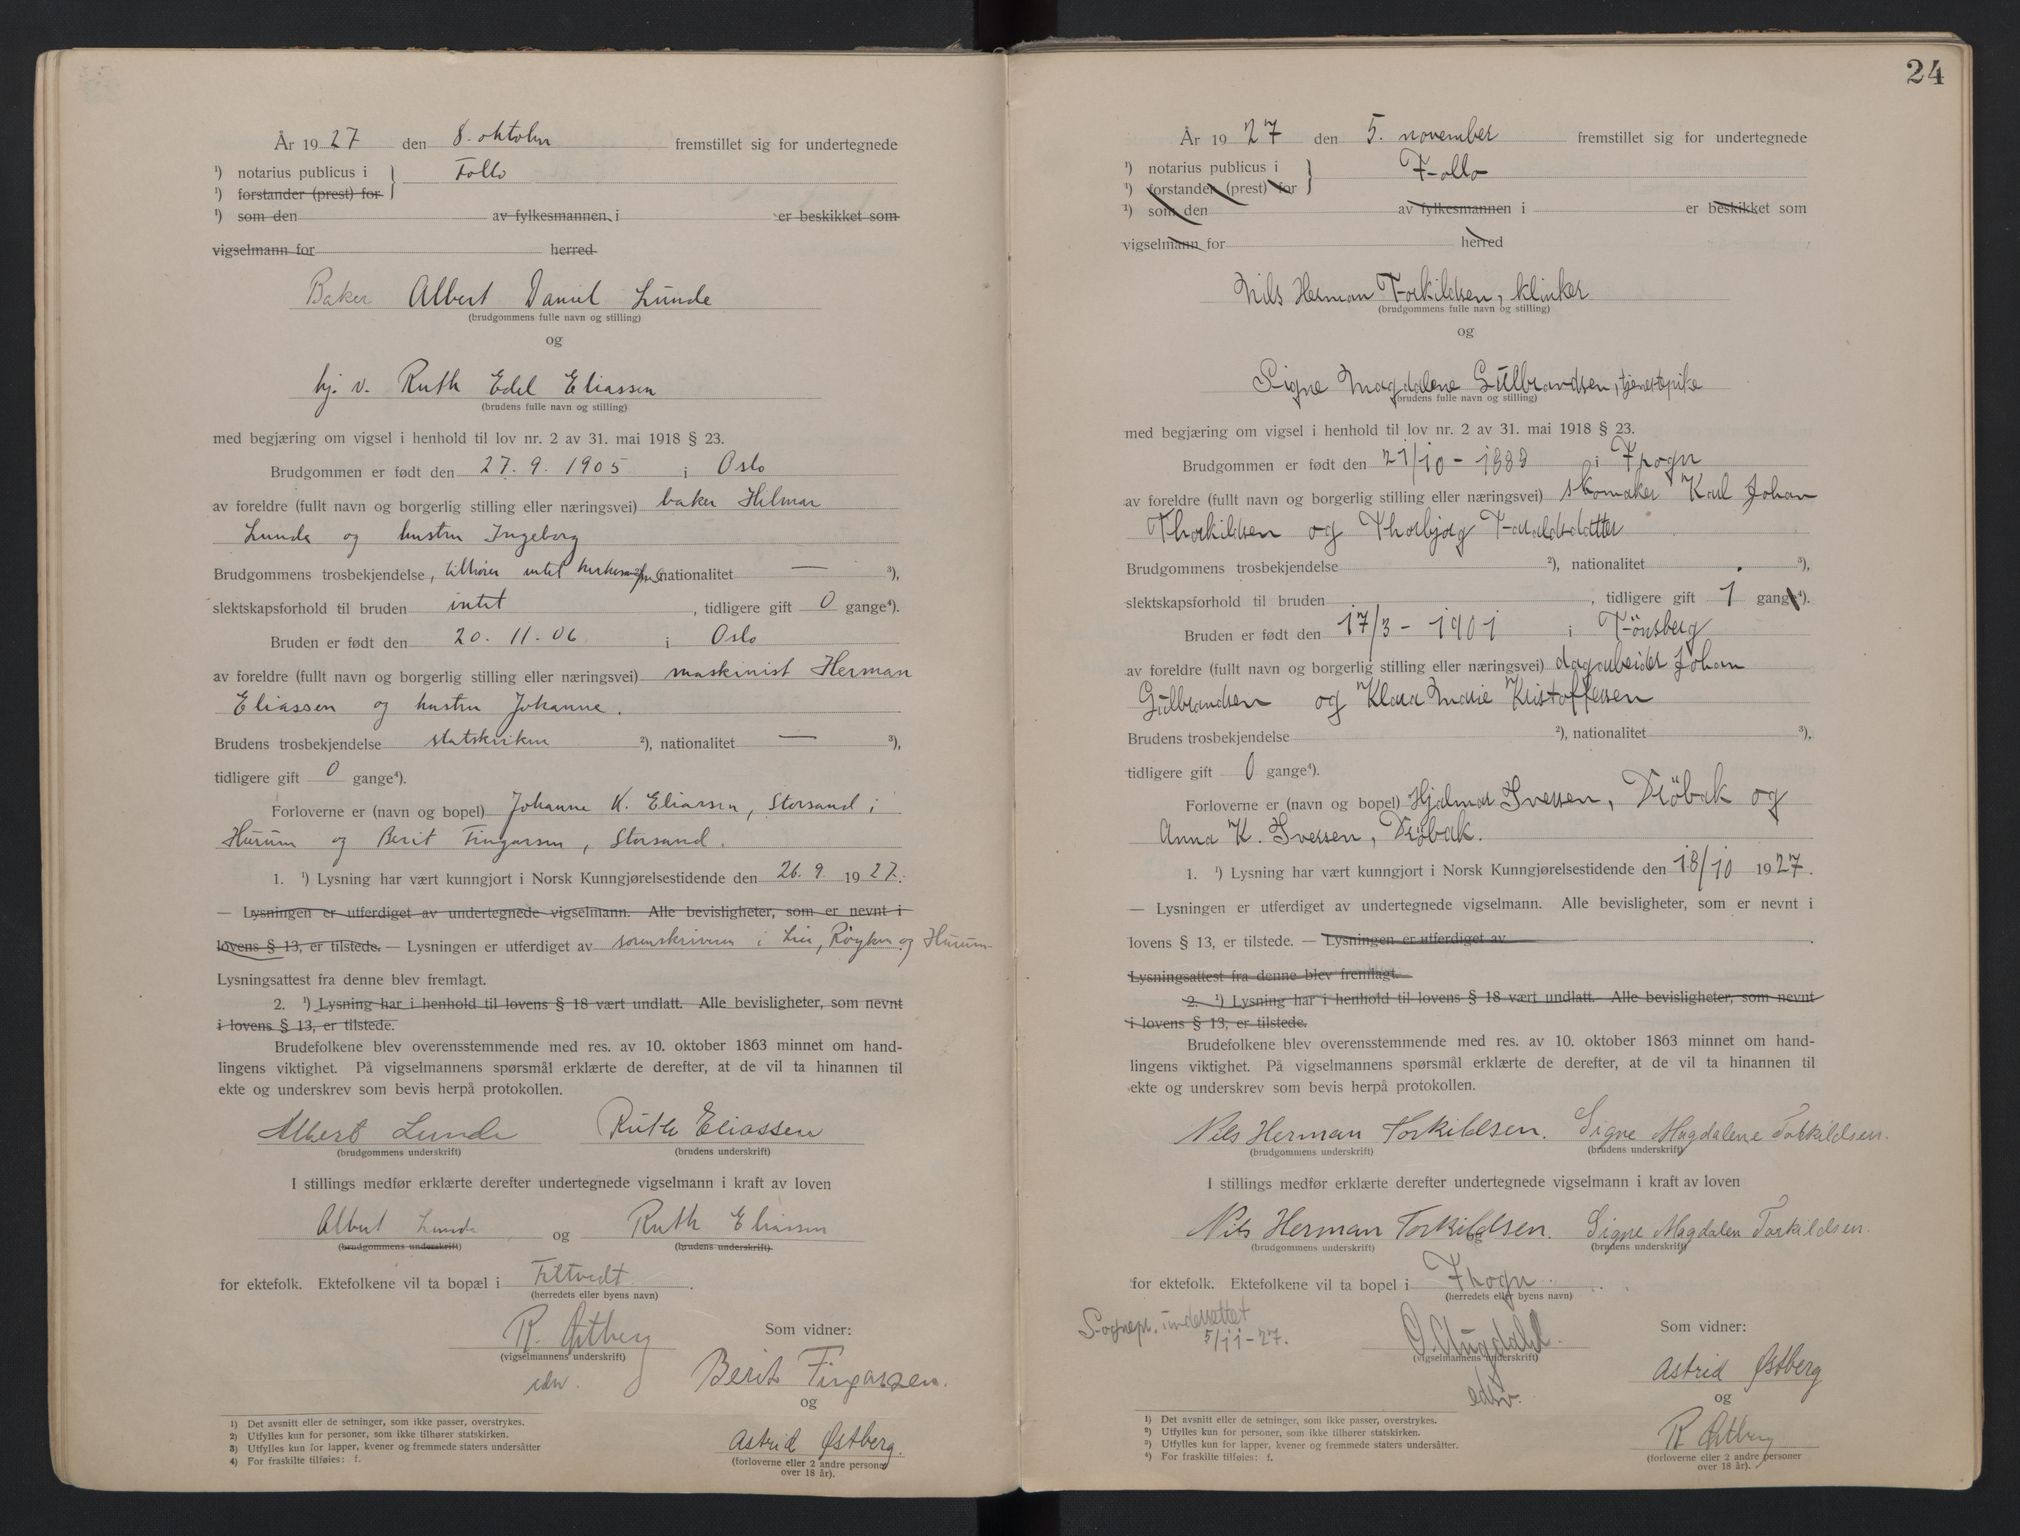 År 1927 den 8. oktober fremstillet sig for undertegnede
¹) notarius publicus i } Follo
¹) forstander (prest) for
¹) som den av fylkesmannen i er beskikket som
vigselmann for herred
Baker Albert Daniel Lunde
(brudgommens fulle navn og stilling)
og
hj. v. Ruth Edel Eliassen
(brudens fulle navn og stilling)
med begjæring om vigsel i henhold til lov nr. 2 av 31. mai 1918 § 23.
Brudgommen er født den 27. 9. 1905 i Oslo
av foreldre (fullt navn og borgerlig stilling eller næringsvei) baker Hilmar
Lunde og hustru Ingeborg
Brudgommens trosbekjendelse, tilhører intet nationalitet — ³),
slektskapsforhold til bruden intet, tidligere gift 0 gange⁴).
Bruden er født den 20. 11. 06 i Oslo
av foreldre (fullt navn og borgerlig stilling eller næringsvei) maskinist Herman
Eliassen og hustru Johanne.
Brudens trosbekjendelse statskirken ²), nationalitet — ³),
tidligere gift 0 gange⁴).
Forloverne er (navn og bopel) Johanne K. Eliassen, Storsand i
Hurum og Berit Fingarsen, Storsand.
1. ¹) Lysning har vært kunngjort i Norsk Kunngjørelsestidende den 26. 9. 1927.
— Lysningen er utferdiget av undertegnede vigselmann. Alle bevisligheter, som er nevnt i
lovens § 13, er tilstede. — Lysningen er utferdiget av sorenskriveren i Lier, Røyken og Hurum-
Lysningsattest fra denne blev fremlagt.
2. ¹) Lysning har i henhold til lovens § 18 vært undlatt. Alle bevisligheter, som nevnt
i lovens § 13, er tilstede.
Brudefolkene blev overensstemmende med res. av 10. oktober 1863 minnet om hand-
lingens viktighet. På vigselmannens spørsmål erklærte de derefter, at de vil ta hinannen til
ekte og underskrev som bevis herpå protokollen.
Albert Lunde Ruth Eliassen
(brudgommens underskrift) (brudens underskrift)
I stillings medfør erklærte derefter undertegnede vigselmann i kraft av loven
Albert Lunde og Ruth Eliassen
(brudgommens underskrift) (brudens underskrift)
for ektefolk. Ektefolkene vil ta bopæl i Filtvedt.
(herredets eller byens navn)
R. Østberg Som vidner:
(vigselmannens underskrift)
Berit Fingarsen.
og
Astrid Østberg.
(forloverne eller 2 andre personer
over 18 år).
1) Det avsnitt eller de setninger, som ikke passer, overstrykes.
2) Utfylles kun for personer, som ikke tilhører statskirken.
3) Utfylles kun for lapper, kvener og fremmede staters undersåtter
4) For fraskilte tilføies: f.
24
År 1927 den 5. november fremstillet sig for undertegnede
¹) notarius publicus i } Follo
¹) forstander (prest) for
¹) som den av fylkesmannen i er beskikket som
vigselmann for herred
Nils Herman Torkildsen, klinker
(brudgommens fulle navn og stilling)
og
Signe Magdalene Gulbrandsen, tjenestepike
(brudens fulle navn og stilling)
med begjæring om vigsel i henhold til lov nr. 2 av 31. mai 1918 § 23.
Brudgommen er født den 21/10 - 1889 i Frogn
av foreldre (fullt navn og borgerlig stilling eller næringsvei) skomaker Karl Johan
Thorkildsen og Thorbjørg Taraldsdatter
Brudgommens trosbekjendelse ²), nationalitet ³),
slektskapsforhold til bruden, tidligere gift 1 gang⁴).
Bruden er født den 17/3 - 1901 i Tönsberg
av foreldre (fullt navn og borgerlig stilling eller næringsvei) dagarbeider Johan
Gulbrandsen og Klara Marie Kristoffersen
Brudens trosbekjendelse ²), nationalitet ³),
tidligere gift 0 gange⁴).
Forloverne er (navn og bopel) Hjalmar Iversen, Dröbak og
Anna K. Iversen, Dröbak.
1. ¹) Lysning har vært kunngjort i Norsk Kunngjørelsestidende den 18/10 1927.
— Lysningen er utferdiget av undertegnede vigselmann. Alle bevisligheter, som er nevnt i
lovens § 13, er tilstede. — Lysningen er utferdiget av
Lysningsattest fra denne blev fremlagt.
2. ¹) Lysning har i henhold til lovens § 18 vært undlatt. Alle bevisligheter, som nevnt
i lovens § 13, er tilstede.
Brudefolkene blev overensstemmende med res. av 10. oktober 1863 minnet om hand-
lingens viktighet. På vigselmannens spørsmål erklærte de derefter, at de vil ta hinannen til
ekte og underskrev som bevis herpå protokollen.
Nils Herman Torkildsen. Signe Magdalene Torkildsen.
(brudgommens underskrift) (brudens underskrift)
I stillings medfør erklærte derefter undertegnede vigselmann i kraft av loven
Nils Herman Torkildsen. og Signe Magdalen Torkildsen.
(brudgommens underskrift) (brudens underskrift)
for ektefolk. Ektefolkene vil ta bopel i Frogn.
(herredets eller byens navn)
Sognepr. underrettet
5/11-27.
O. Augdahl. Som vidner:
(vigselmannens underskrift)
edsv.
Astrid Østberg
og
R Østberg
(forloverne eller 2 andre personer
over 18 år).
¹) Det avsnitt eller de setninger, som ikke passer, overstrykes.
²) Utfylles kun for personer, som ikke tilhører statskirken.
³) Utfylles kun for lapper, kvener og fremmede staters undersåtter.
⁴) For fraskilte tilføies: f.